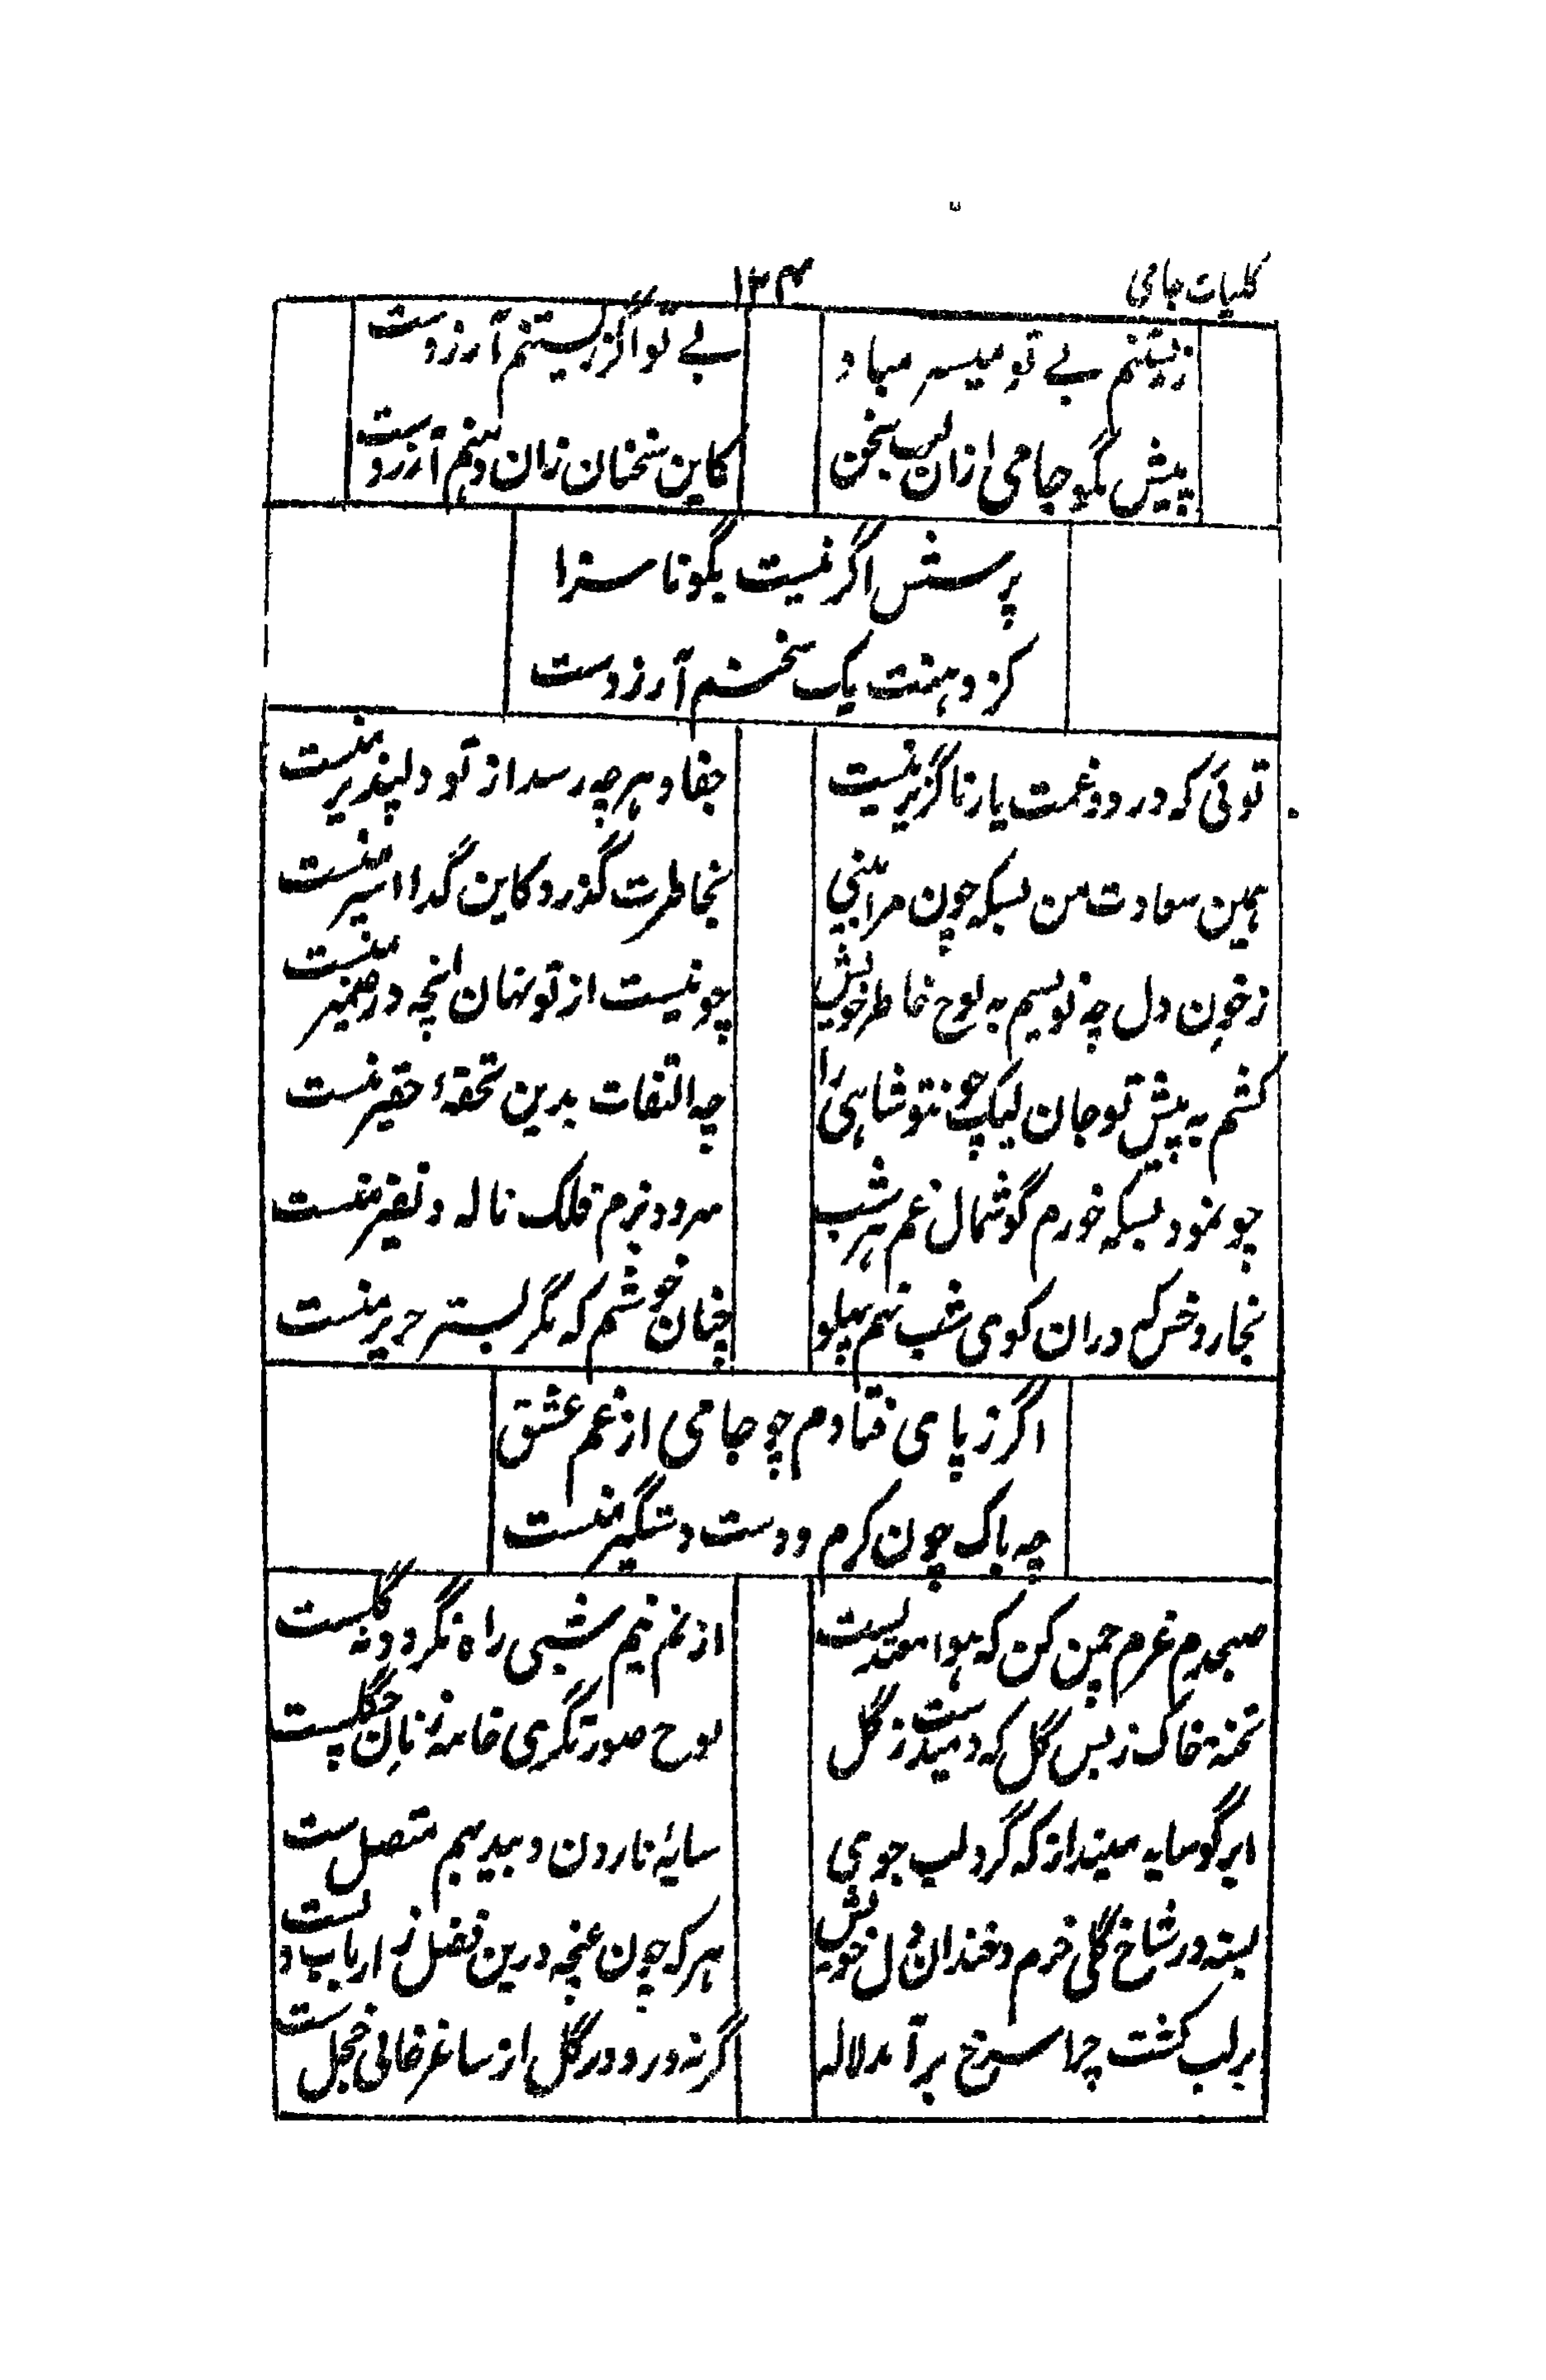 کلیات جامی
۱۳۴
زیستنم بے تو میسر مباد
بے تو اگر زیستنم آرزوست
پیش مگو جامی ازان لب سخن
کاین سخنان زان دهنم آرزوست
پرسش اگر نیست بگو ناسزا
کز دهنت یک سخنم آرزوست
توئی که درد و غمت یار ناگزیر منست
جفا و هر چه رسد از تو دلپذیر منست
همین سعادت من بسکه چون مرا بینی
بخاطرت گذرد کاین گدا اسیر منست
ز خون دل چه نویسم به لوح خاطر خویش
چو نیست از تو نهان انچه در ضمیر منست
کشم به پیش تو جان لیک چون تو شاهی را
چه التفات بدین تحفهٔ حقیر منست
چو عود بسکه خورم گوشمال غم هر شب
سرود بزم فلک ناله و نفیر منست
بخار و خس که دران کوی شب نهم پهلو
چنان خوشم که مگر بستر حریر منست
اگر ز پای فتادم چو جامی از غم عشق
چه باک چون کرم دوست دستگیر منست
صبحدم عزم چمن کن که هوا معتدلست
از نم نیم شبی راه نگر دونه گلست
تختهٔ خاک ز بس گل که دمیدست ز گل
لوح صورتگری خامه زنان چگلست
ابر گو سایه مینداز که گرد لب جوی
سایهٔ نارون و بید بهم متصل ست
بسته در شاخ گلی خرم و خندان دل خویش
هر که چون غنچه درین فصل ز ارباب دلست
بر لب کشت چرا سرخ برآمد لاله
گر نه در دور گل از ساغر خالی خجل ست